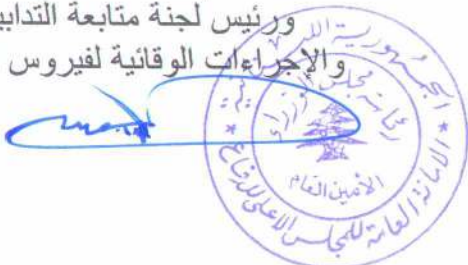 ورئيس لجنة متابعة التدابير
والإجراءات الوقائية لفيروس
الجمهورية اللبنانية
رئاسة مجلس الوزراء
الأمين العام
الامانة العامة للمجلس الاعلى للدفاع